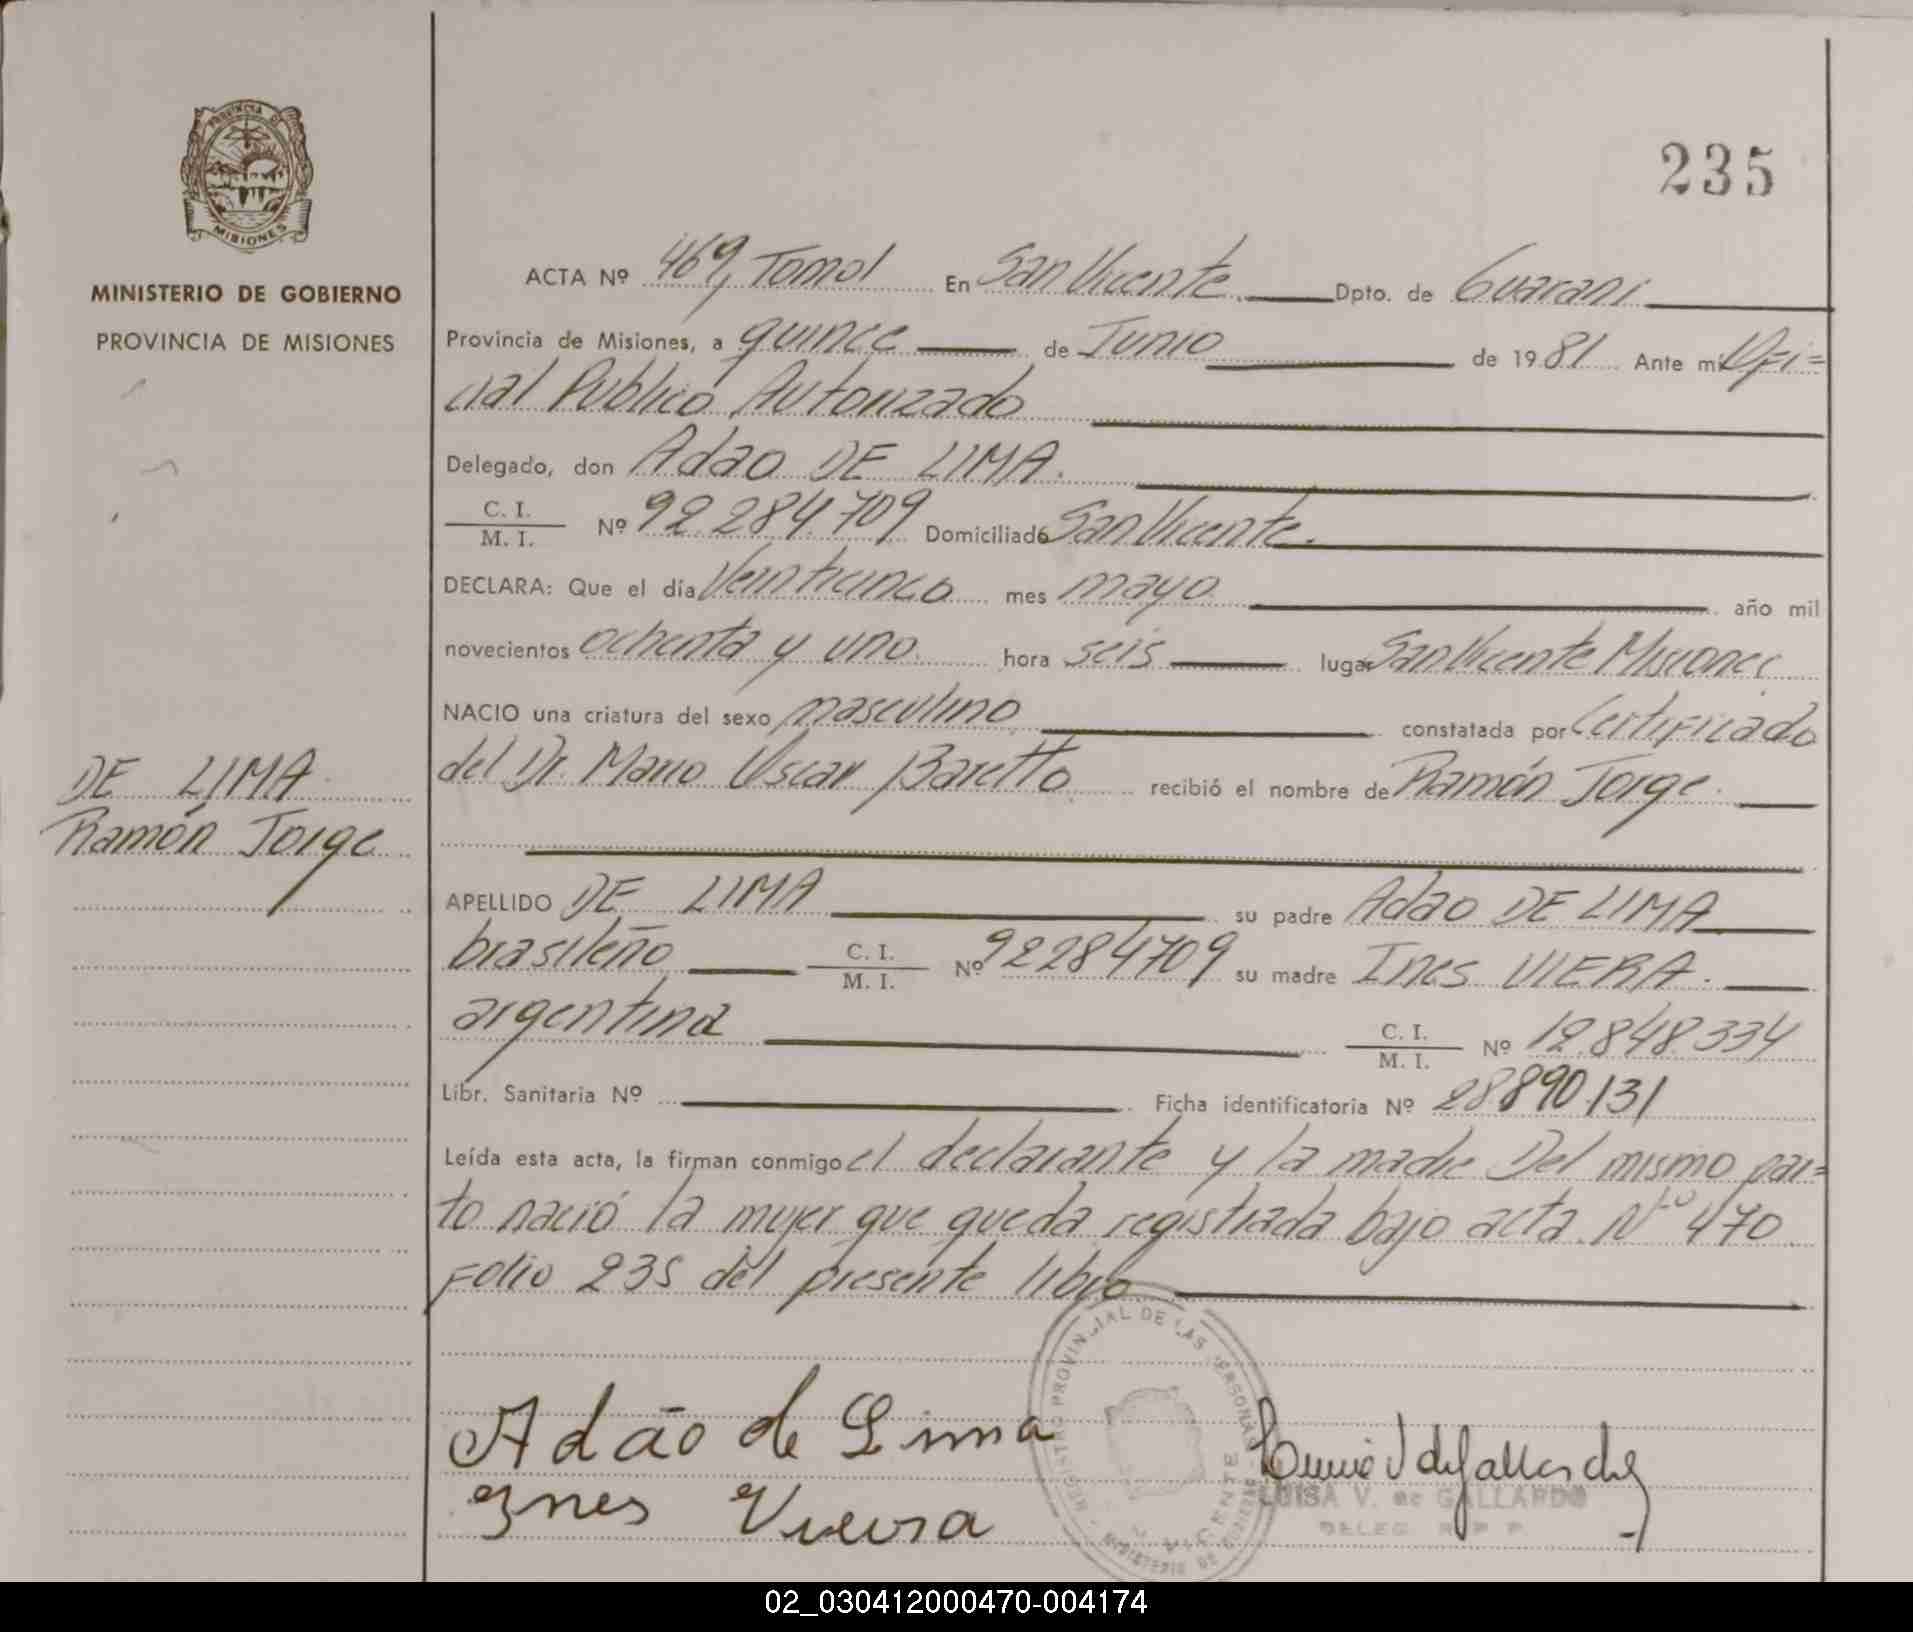 235
PROVINCIA DE
MISIONES
MINISTERIO DE GOBIERNO
PROVINCIA DE MISIONES
ACTA Nº 469, Tomo I En San Vicente Dpto. de Guarani
Provincia de Misiones, a quince de Junio de 1981 Ante mi Ofi=
cial Publico Autorizado
Delegado, don Adao DE LIMA.
C. I.
M. I. Nº 92.284.709 Domiciliado San Vicente.
DECLARA: Que el día Veinticinco mes mayo año mil
novecientos ochenta y uno. hora seis lugar San Vicente Misiones
NACIO una criatura del sexo masculino constatada por Certificado
del Dr. Mario Oscar Baretto recibió el nombre de Ramón Jorge.
DE LIMA
Ramón Jorge
APELLIDO DE LIMA su padre Adao DE LIMA
brasileño C. I.
M. I. Nº 92284709 su madre Ines VIERA.
argentina C. I.
M. I. Nº 12.848.334
Libr. Sanitaria Nº Ficha identificatoria Nº 28890.131
Leída esta acta, la firman conmigo el declarante y la madre Del mismo par=
to nació la mujer que queda registrada bajo acta Nº 470
Folio 235 del presente libro
Adão de Lima
Ines Vieira
REGISTRO PROVINCIAL DE LAS PERSONAS
MINISTERIO DE GOBIERNO
VICENTE
LUISA V. de GALLARDO
DELEG. R. P. P.
02_030412000470-004174